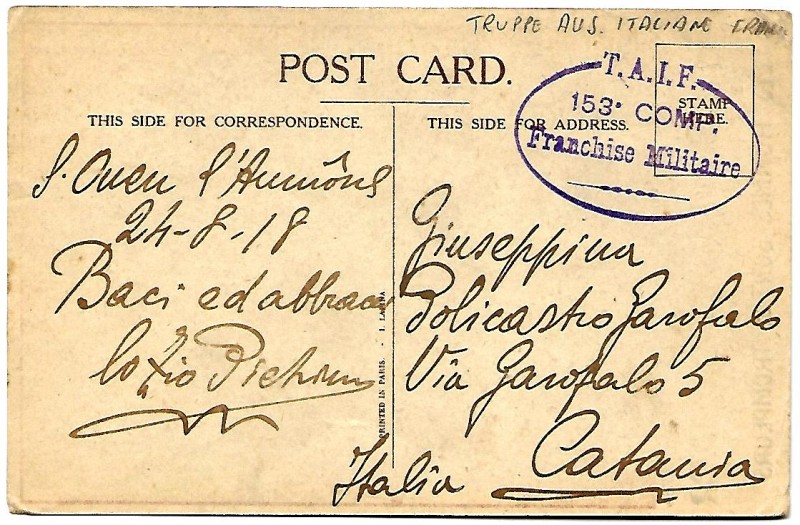 TRUPPE AUS. ITALIANE
POST CARD.
T.A.I.F.
153ª COMP.
Franchise Militaire
STAMP
HERE.
THIS SIDE FOR CORRESPONDENCE.
THIS SIDE FOR ADDRESS.
S. Ouen l'Aumône
24-8-18
Baci ed abbracci
lo zio
PRINTED IN PARIS. - I. LAPINA
Giuseppina
Policastro Garofalo
Via Garofalo 5
Catania
Italia